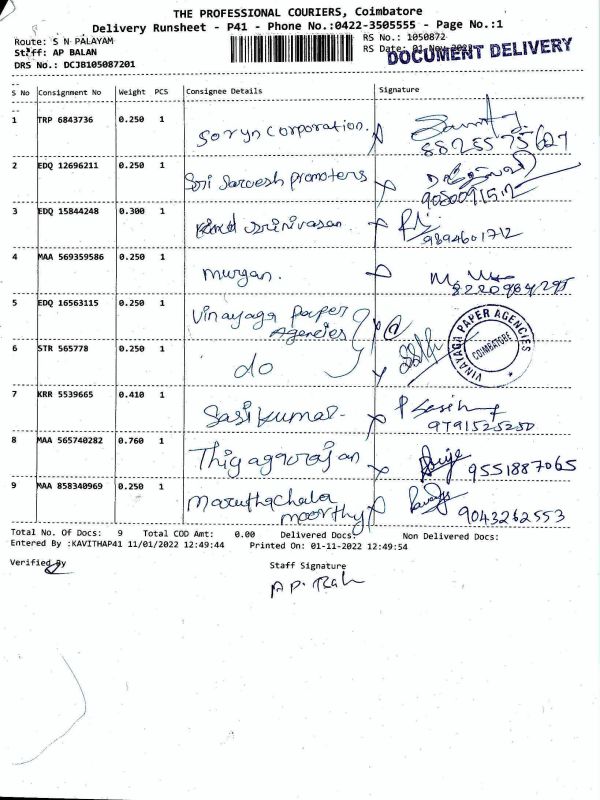 THE PROFESSIONAL COURIERS, Coimbatore
Delivery Runsheet - P41 - Phone No.:0422-3505555 - Page No.:1
Route: S N PALAYAM
RS No.: 1050872
Staff: AP BALAN
RS Date: 01-Nov-2022
DOCUMENT DELIVERY
DRS No.: DCJB105087201
S No Consignment No Weight PCS Consignee Details Signature
1 TRP 6843736 0.250 1 Soryn Corporation.
8825575627
2 EDQ 12696211 0.250 1 Sri Sarvesh promoters
3 EDQ 15844248 0.300 1 Srinivasan.
9894601712
4 MAA 569359586 0.250 1 murgan.
8220984295
5 EDQ 16563115 0.250 1 Vinayaga paper
Agencies
VINAYAGA PAPER AGENCIES
COIMBATORE
6 STR 565778 0.250 1 do
7 KRR 5539665 0.410 1 Sasikumar.
9791525250
8 MAA 565740282 0.760 1 Thigagarajan
9551887065
9 MAA 858340969 0.250 1 Maruthachala
moorthy
9043262553
Total No. Of Docs: 9 Total COD Amt: 0.00 Delivered Docs: Non Delivered Docs:
Entered By :KAVITHAP41 11/01/2022 12:49:44 Printed On: 01-11-2022 12:49:54
Verified By
Staff Signature